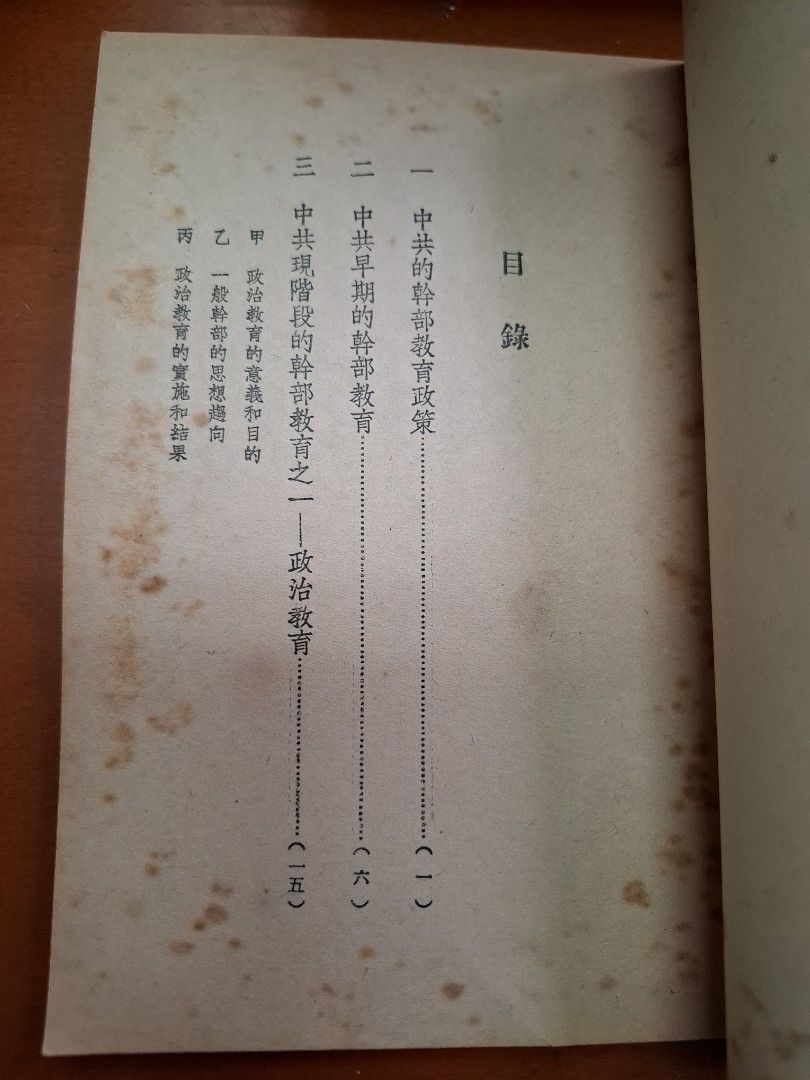 目錄
一 中共的幹部教育政策…………(一)
二 中共早期的幹部教育…………(六)
三 中共現階段的幹部教育之一—政治教育…………(一五)
甲 政治教育的意義和目的
乙 一般幹部的思想趨向
丙 政治教育的實施和結果